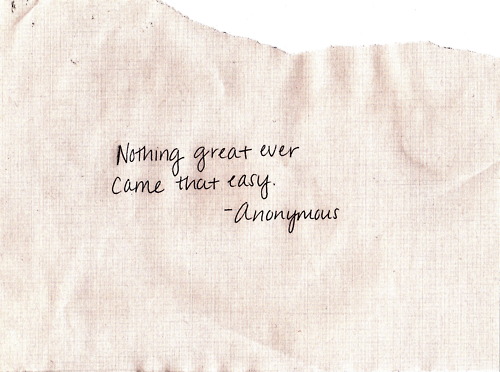 Nothing great ever
Came that easy.
-Anonymous